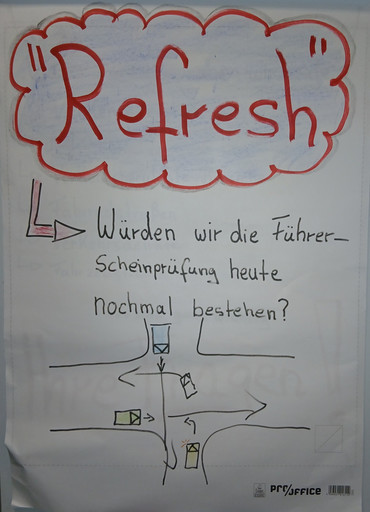 "Refresh"
Würden wir die Führer-
Scheinprüfung heute
nochmal bestehen?
pro/office